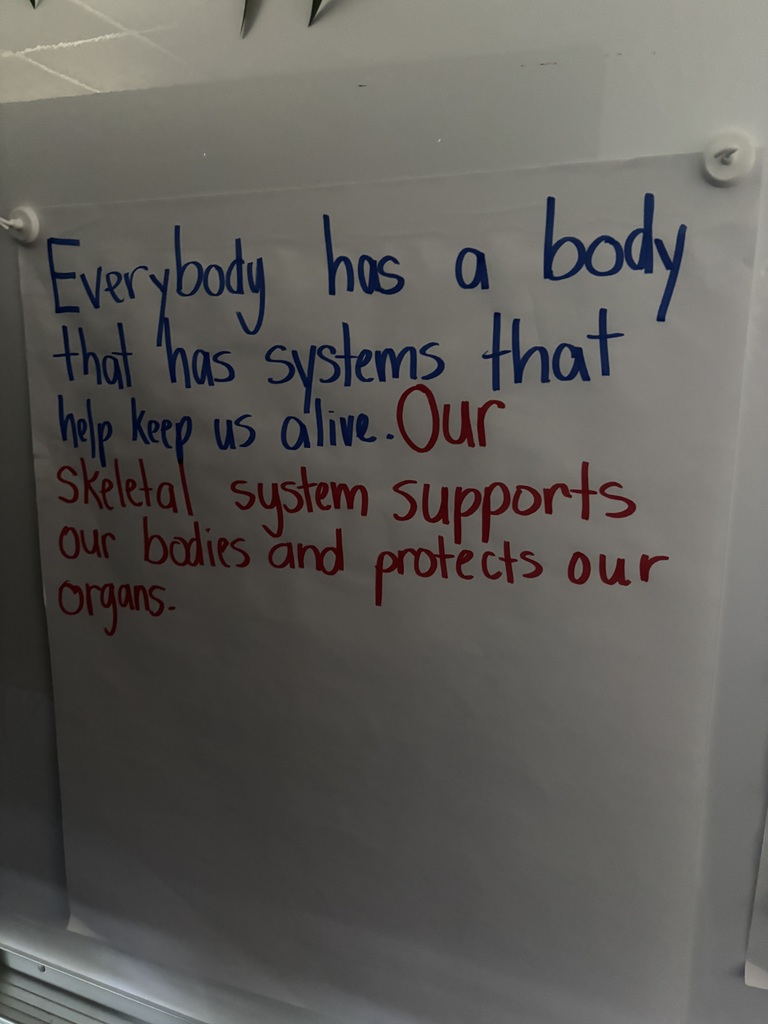 Everybody has a body
that has systems that
help keep us alive. Our
skeletal system supports
our bodies and protects our
organs.